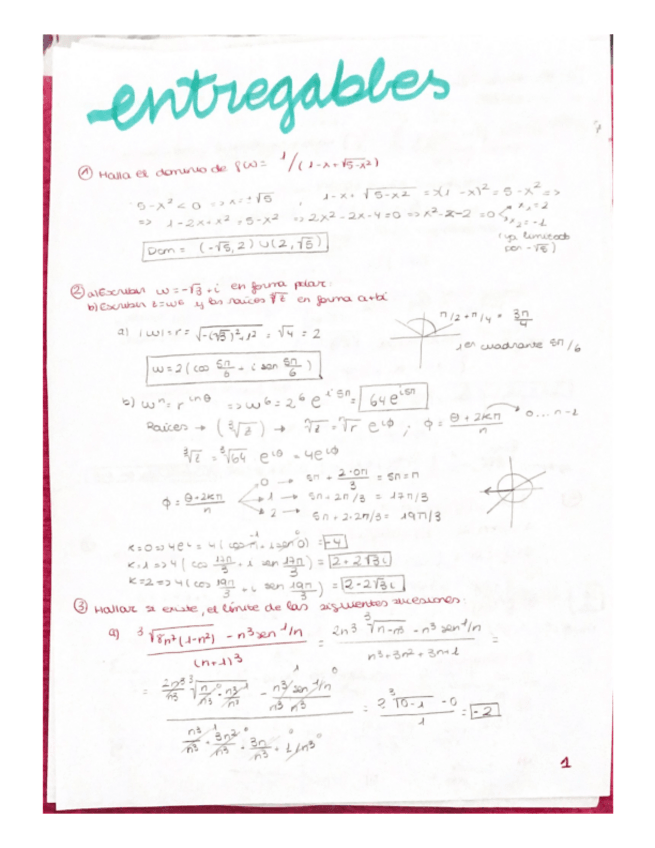 entregables
① Halla el dominio de f(x)= 1/(1-x+√5-x²)
5-x²<0 => x=±√5 , 1-x+√5-x² => (1-x)²=5-x² =>
=> 1-2x+x²=5-x² => 2x²-2x-4=0 => x²-x-2=0 x₁=2 x₂=-1
(ya limitado por -√5)
Dom = (-√5,2)∪(2,√5)
② a) Escribir w=-√3+i en forma polar.
b) Escribir z=w6 y las raíces ∛z en forma a+bi
a) |w|=r=√-(√3)²+1² = √4 = 2
π/2+π/4 = 3π/4
en cuadrante 5π/6
w=2(cos 5π/6 + i sen 5π/6)
b) wⁿ=r^inθ => w⁶=2⁶ e^i5π = 64e^i5π
Raíces → (∛z) → ⁿ√z=ⁿ√r e^iφ ; φ = θ+2kπ/n → 0...n-1
∛z = ∛64 e^iφ = 4e^iφ
φ = θ+2kπ/n
0 → 5π + 2·0π/3 = 5π=π
1 → 5π+2π/3 = 17π/3
2 → 5π+2·2π/3 = 19π/3
k=0 => 4e^i = 4(cos π + i sen 0) = -4
k=1 => 4(cos 17π/3 + i sen 17π/3) = 2+2√3i
k=2 => 4(cos 19π/3 + i sen 19π/3) = 2-2√3i
③ Hallar si existe, el límite de las siguientes sucesiones:
a) ∛8n⁷(1-n²) - n³sen 1/n / (n+1)³ = 2n³ ∛n-n³ - n³sen 1/n / n³+3n²+3n+1 =
= 2n³/n³ ∛n/n³ - n³/n³ - n³/n³ sen 1/n / n³ / n³/n³ + 3n²/n³ + 3n/n³ + 1/n³ = 2∛0-1 - 0 / 1 = -2
1